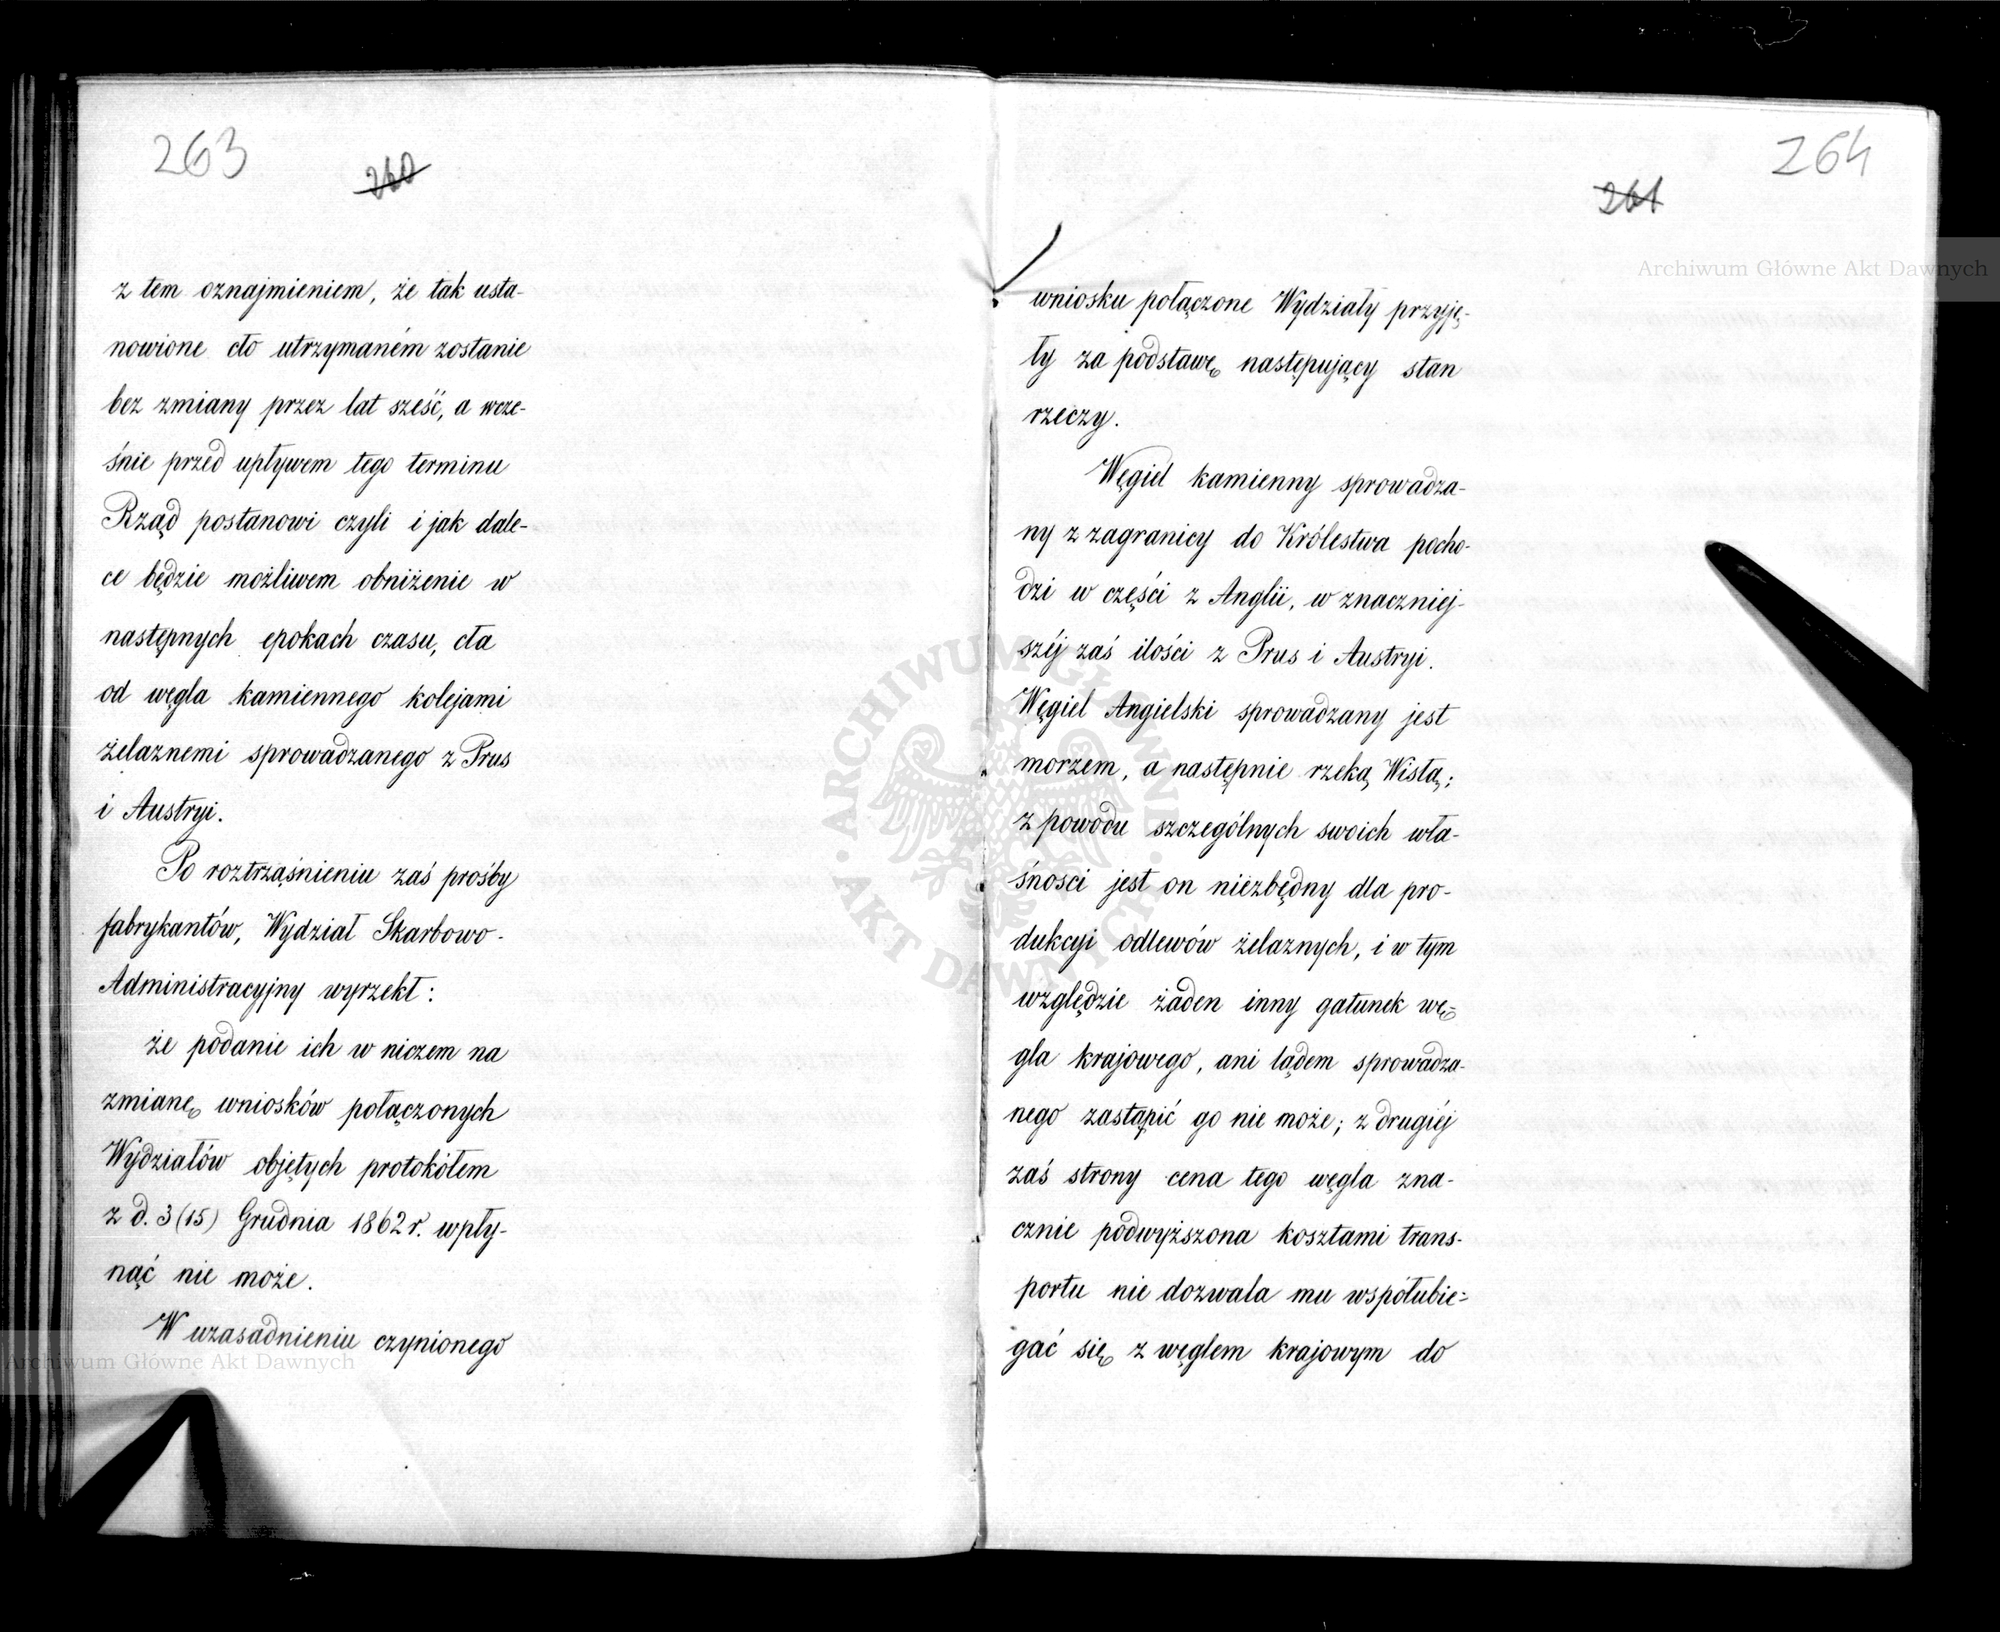 263
260
z tem oznajmieniem, że tak usta-
nowione cło utrzymaném zostanie
bez zmiany przez lat sześć, a wcze-
śnie przed upływem tego terminu
Rząd postanowi czyli i jak dale-
ce będzie możliwem obniżenie w
następnych epokach czasu, cła
od węgla kamiennego kolejami
żelaznemi sprowadzanego z Prus
i Austryi.
Po roztrząśnieniu zaś prośby
fabrykantów, Wydział Skarbowo-
Administracyjny wyrzekł:
że podanie ich w niczem na
zmianę wniosków połączonych
Wydziałów objętych protokółem
z d. 3 (15) Grudnia 1862 r. wpły-
nąć nie może.
W uzasadnieniu czynionego
264
261
wniosku połączone Wydziały przyję-
ły za podstawę następujący stan
rzeczy.
Węgiel kamienny sprowadza-
ny z zagranicy do Królestwa pocho-
dzi w części z Anglii, w znaczniej-
széj zaś ilości z Prus i Austryi.
Węgiel Angielski sprowadzany jest
morzem, a następnie rzeką Wisłą;
z powodu szczególnych swoich wła-
śnosci jest on niezbędny dla pro-
dukcyi odlewów żelaznych, i w tym
względzie żaden inny gatunek wę-
gla krajowego, ani lądem sprowadza-
nego zastąpić go nie może; z drugiéj
zaś strony cena tego węgla zna-
cznie podwyższona kosztami trans-
portu nie dozwala mu współubie-
gać się z węglem krajowym do
Archiwum Główne Akt Dawnych
ARCHIWUM GŁÓWNE AKT DAWNYCH
Archiwum Główne Akt Dawnych